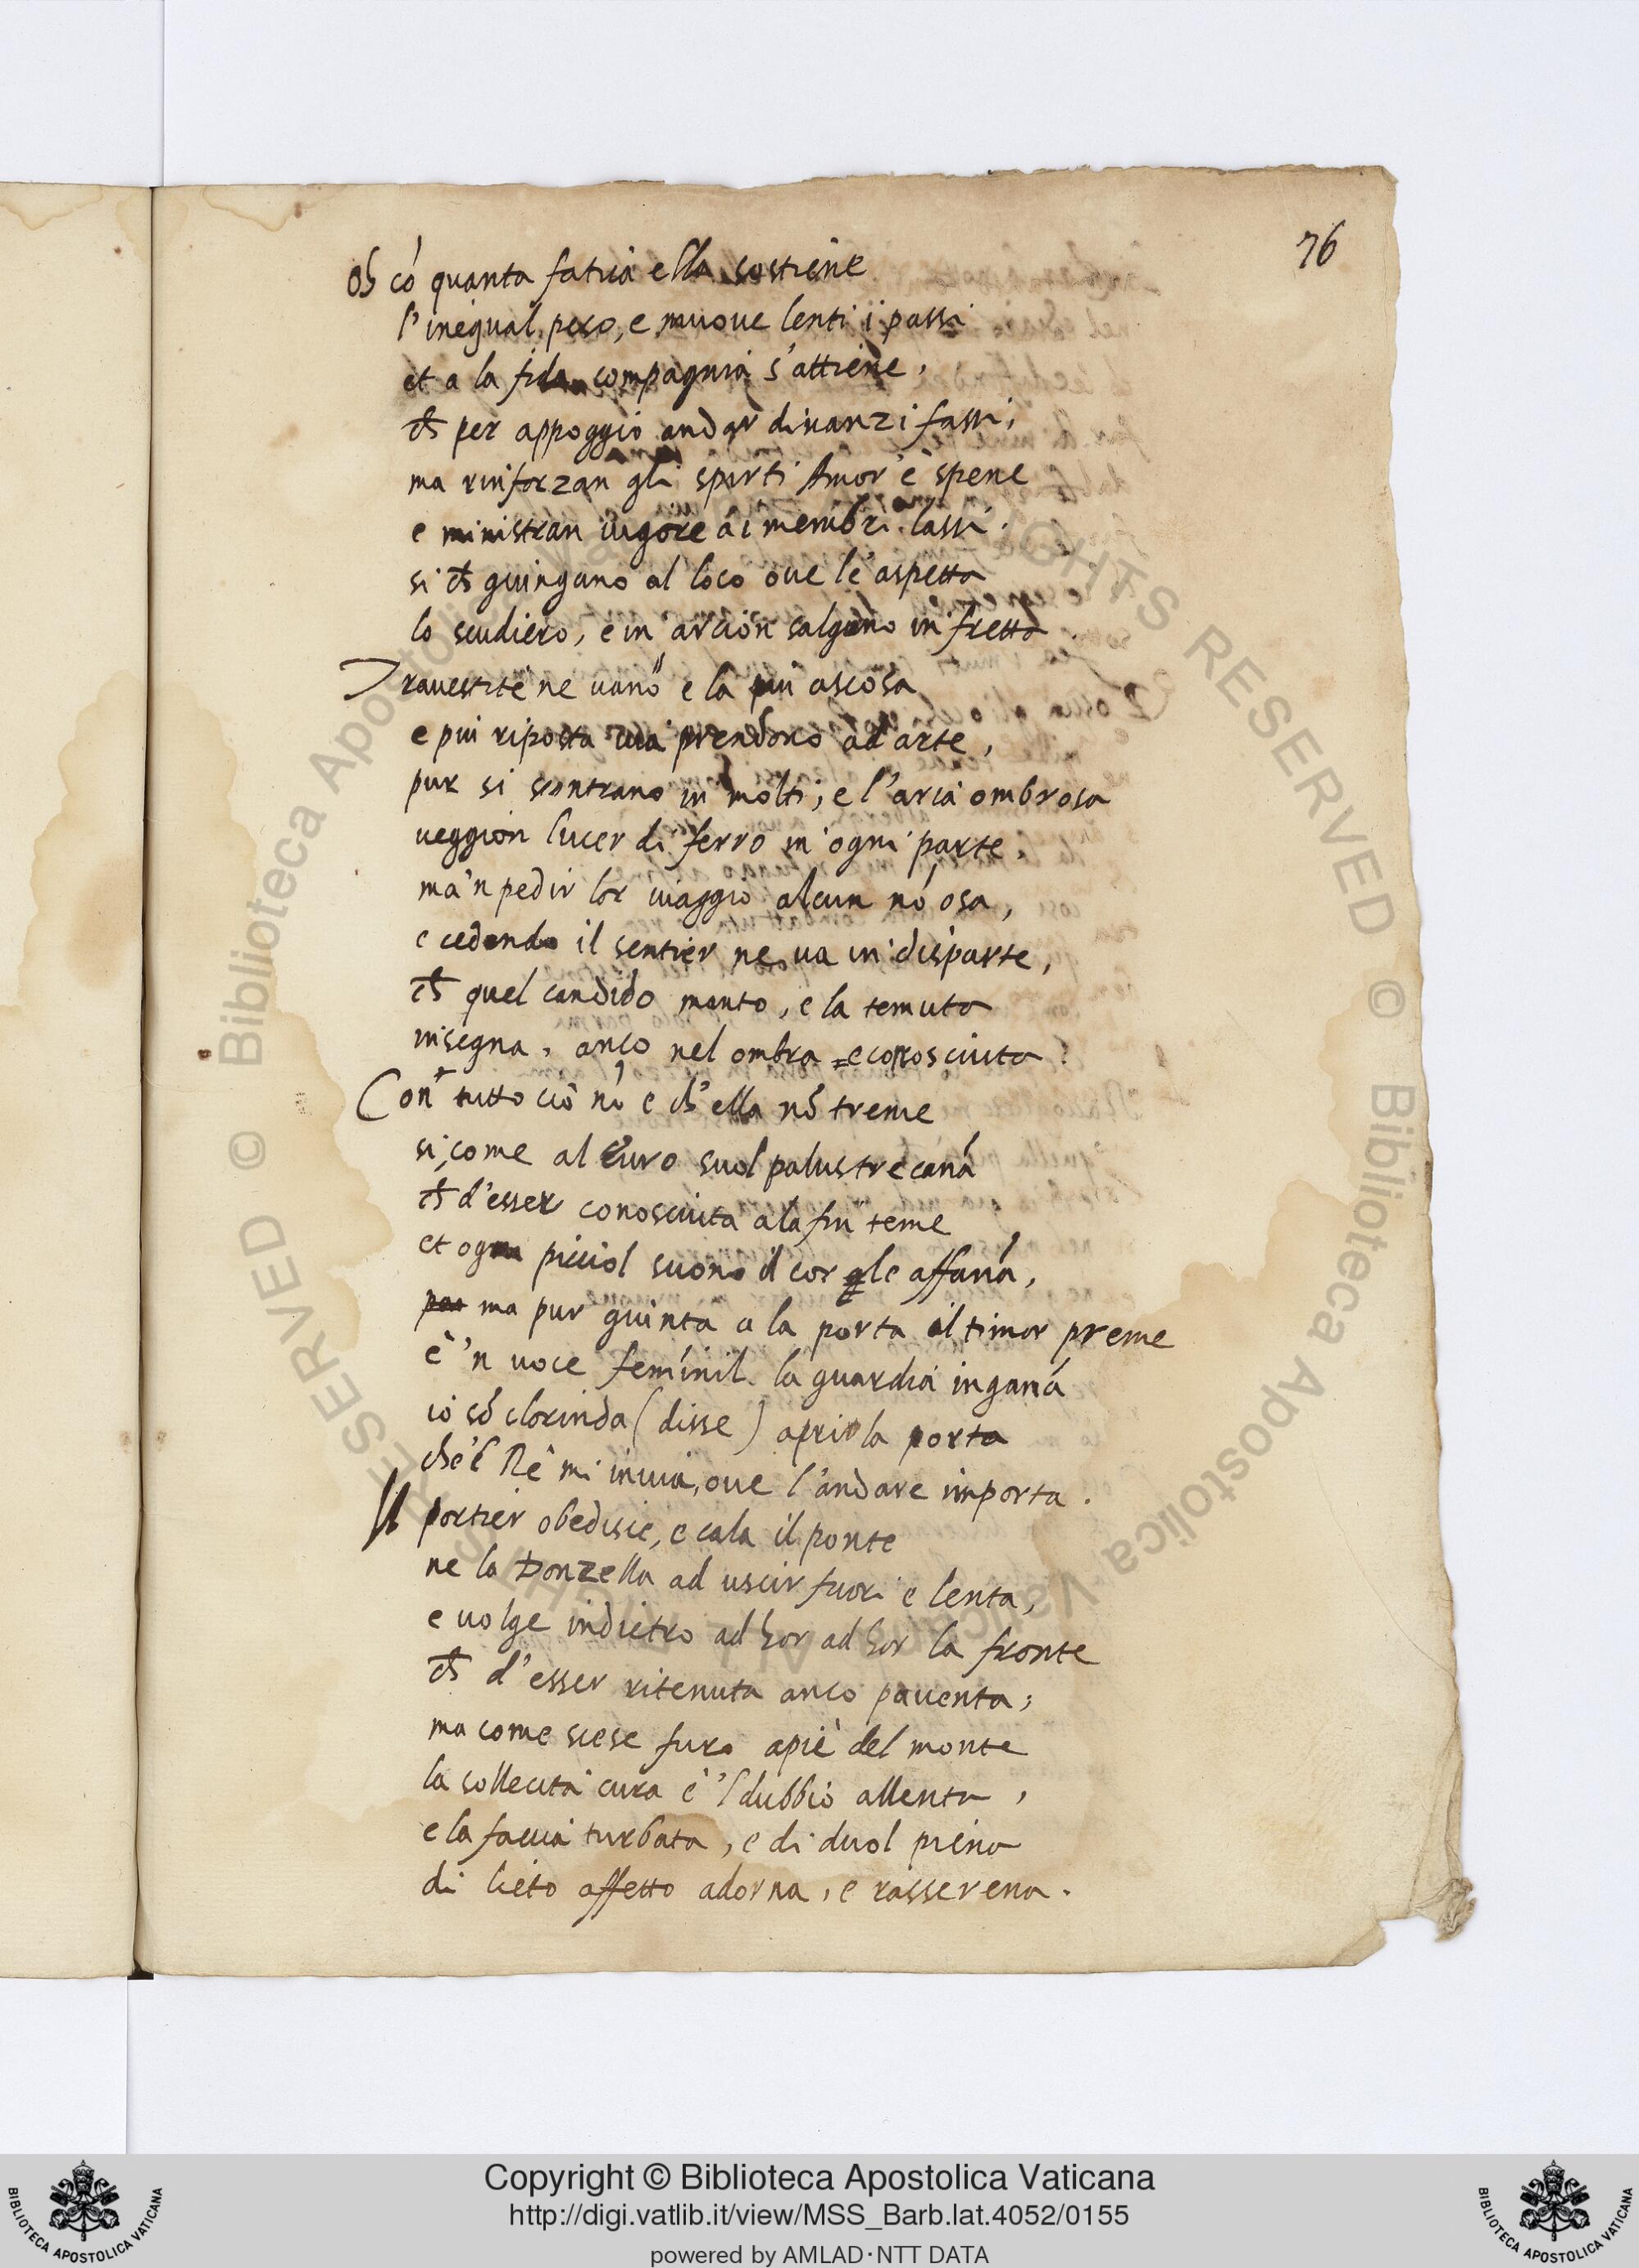 76
Oh có quanta fatica ella sostiene
l'inegual peso, e muove lenti i passi
et a la fida compagnia s'attiene,
ch per appoggio andar dinanzi fassi;
ma rinforzan gli spirti Amor è spene
e ministran vigore ài membri lassi.
si ch giungano al loco ove le aspetta
lo scudiero, e in arcion salgono in fretta.
Travestite ne vano e la più ascosa
e più riposta via prendono ad arte,
pur si scontrano in molti; e l'aria ombrosa
veggion lucer di ferro in ogni parte.
ma 'n pedir lor viaggio alcun nó osa,
e cedendo il sentier ne va in disparte,
ch quel candido manto, e la temuta
insegna, anco nel ombra = e conosciuta.
Con tutto ciò nó e ch'ella nó treme
si, come al Euro suol palustre caná
ch d'esser conosciuta a la fin teme
et ogni picciol suono il cor gle affaná,
ma pur giunta a la porta il timor preme
è 'n voce feminil la guardia inganá
io só clorinda (disse) apri la porta
che'l Rè mi invia, ove l'andare importa.
Il portier obedisce, e cala il ponte
ne la Donzella ad uscir fuori e lenta,
e volge indietro ad hor ad hor la fronte
ch d'esser ritenuta anco paventa;
ma come scese furo apiè del monte
la sollecita cura è 'l dubbio allenta,
e la faccia turbata, e di duol piena
di lieto affetto adorna, e rasserena.
© Biblioteca Apostolica Vaticana
ALL RIGHTS RESERVED
© Biblioteca Apostolica Vaticana
ALL RIGHTS RESERVED
Copyright © Biblioteca Apostolica Vaticana
http://digi.vatlib.it/view/MSS_Barb.lat.4052/0155
powered by AMLAD·NTT DATA
BIBLIOTECA APOSTOLICA VATICANA
BIBLIOTECA APOSTOLICA VATICANA